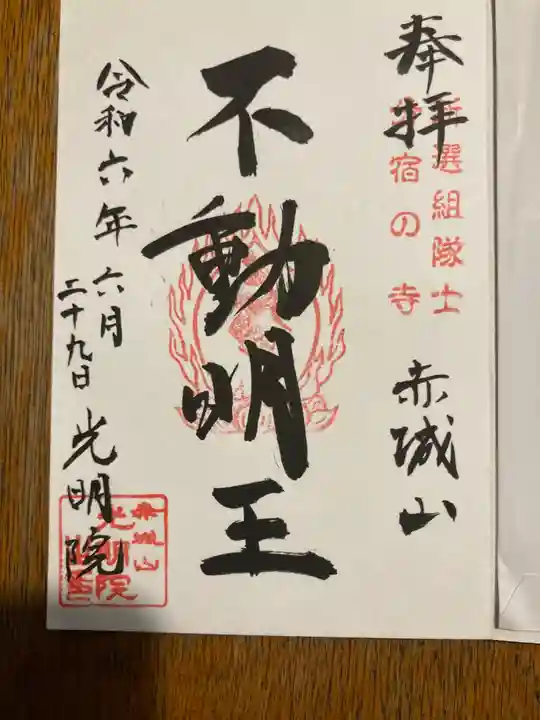 奉拝
新選組隊士
分宿の寺
赤城山
不動明王
令和六年六月
二十九日
光明院
赤城山
光明院